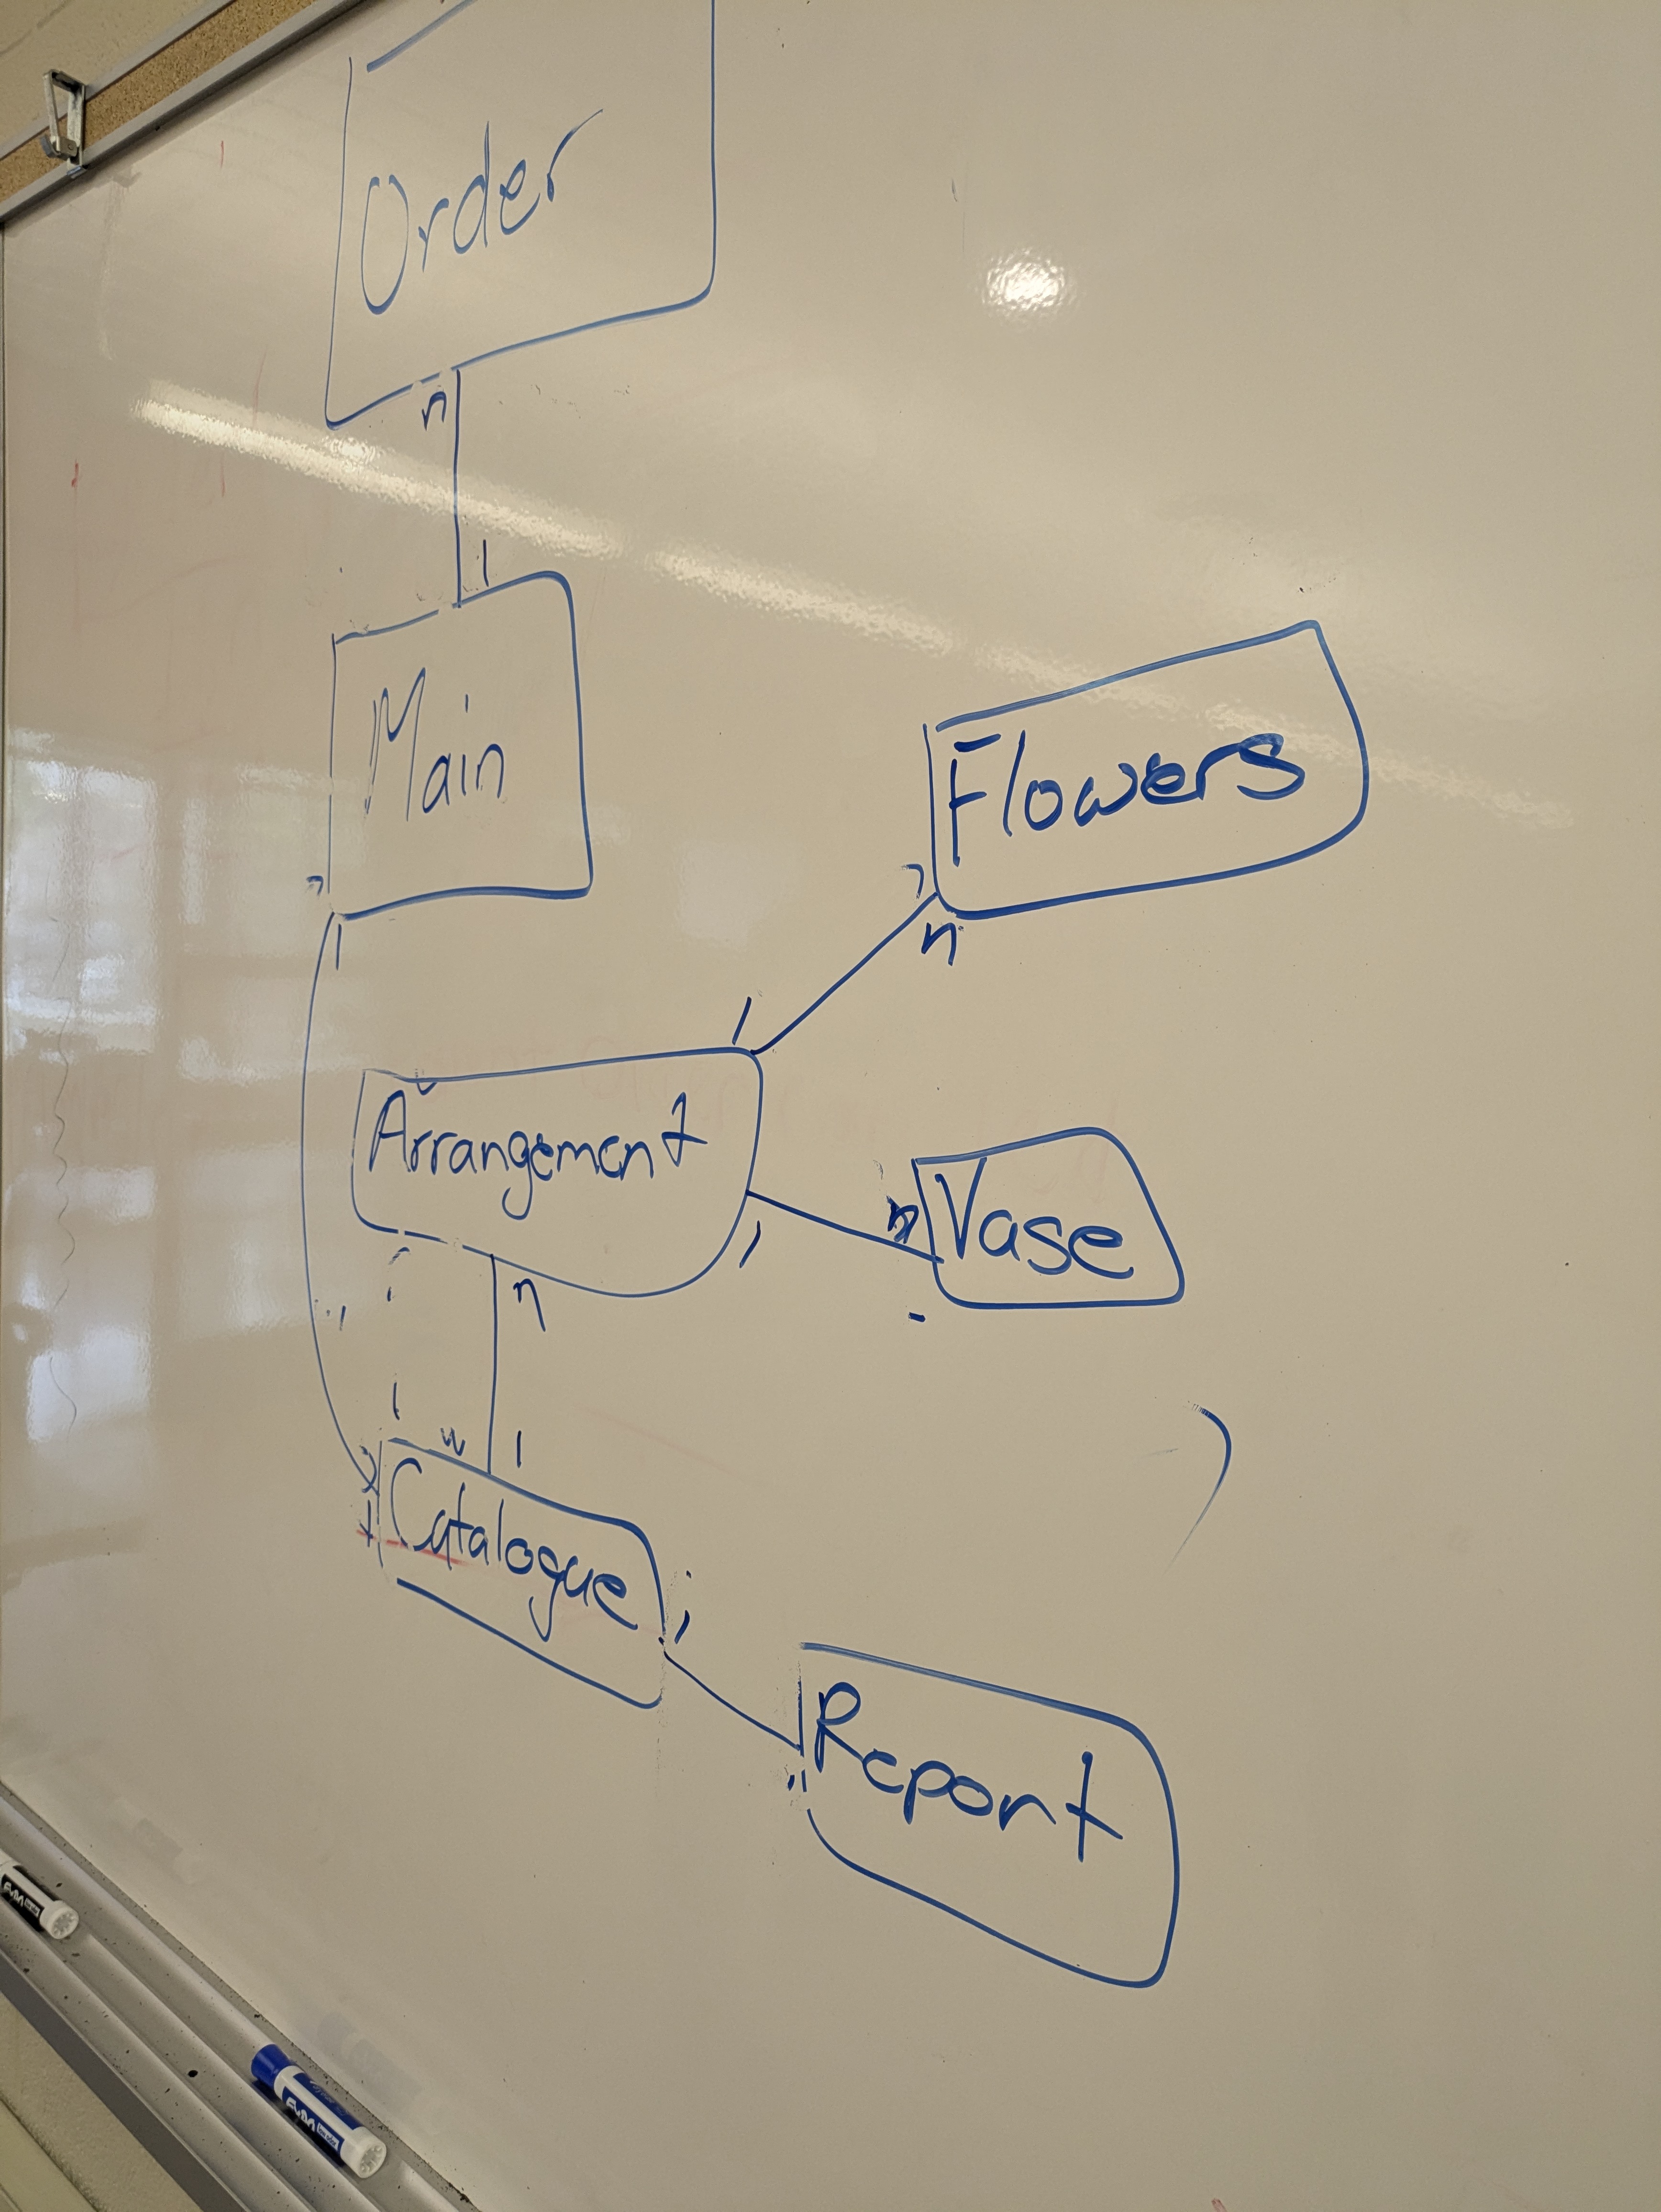 Order
n
1
Main
1
Flowers
n
1
Arrangement
1
Vase
n
n
1
Catalogue
Report
EXPO
EXPO